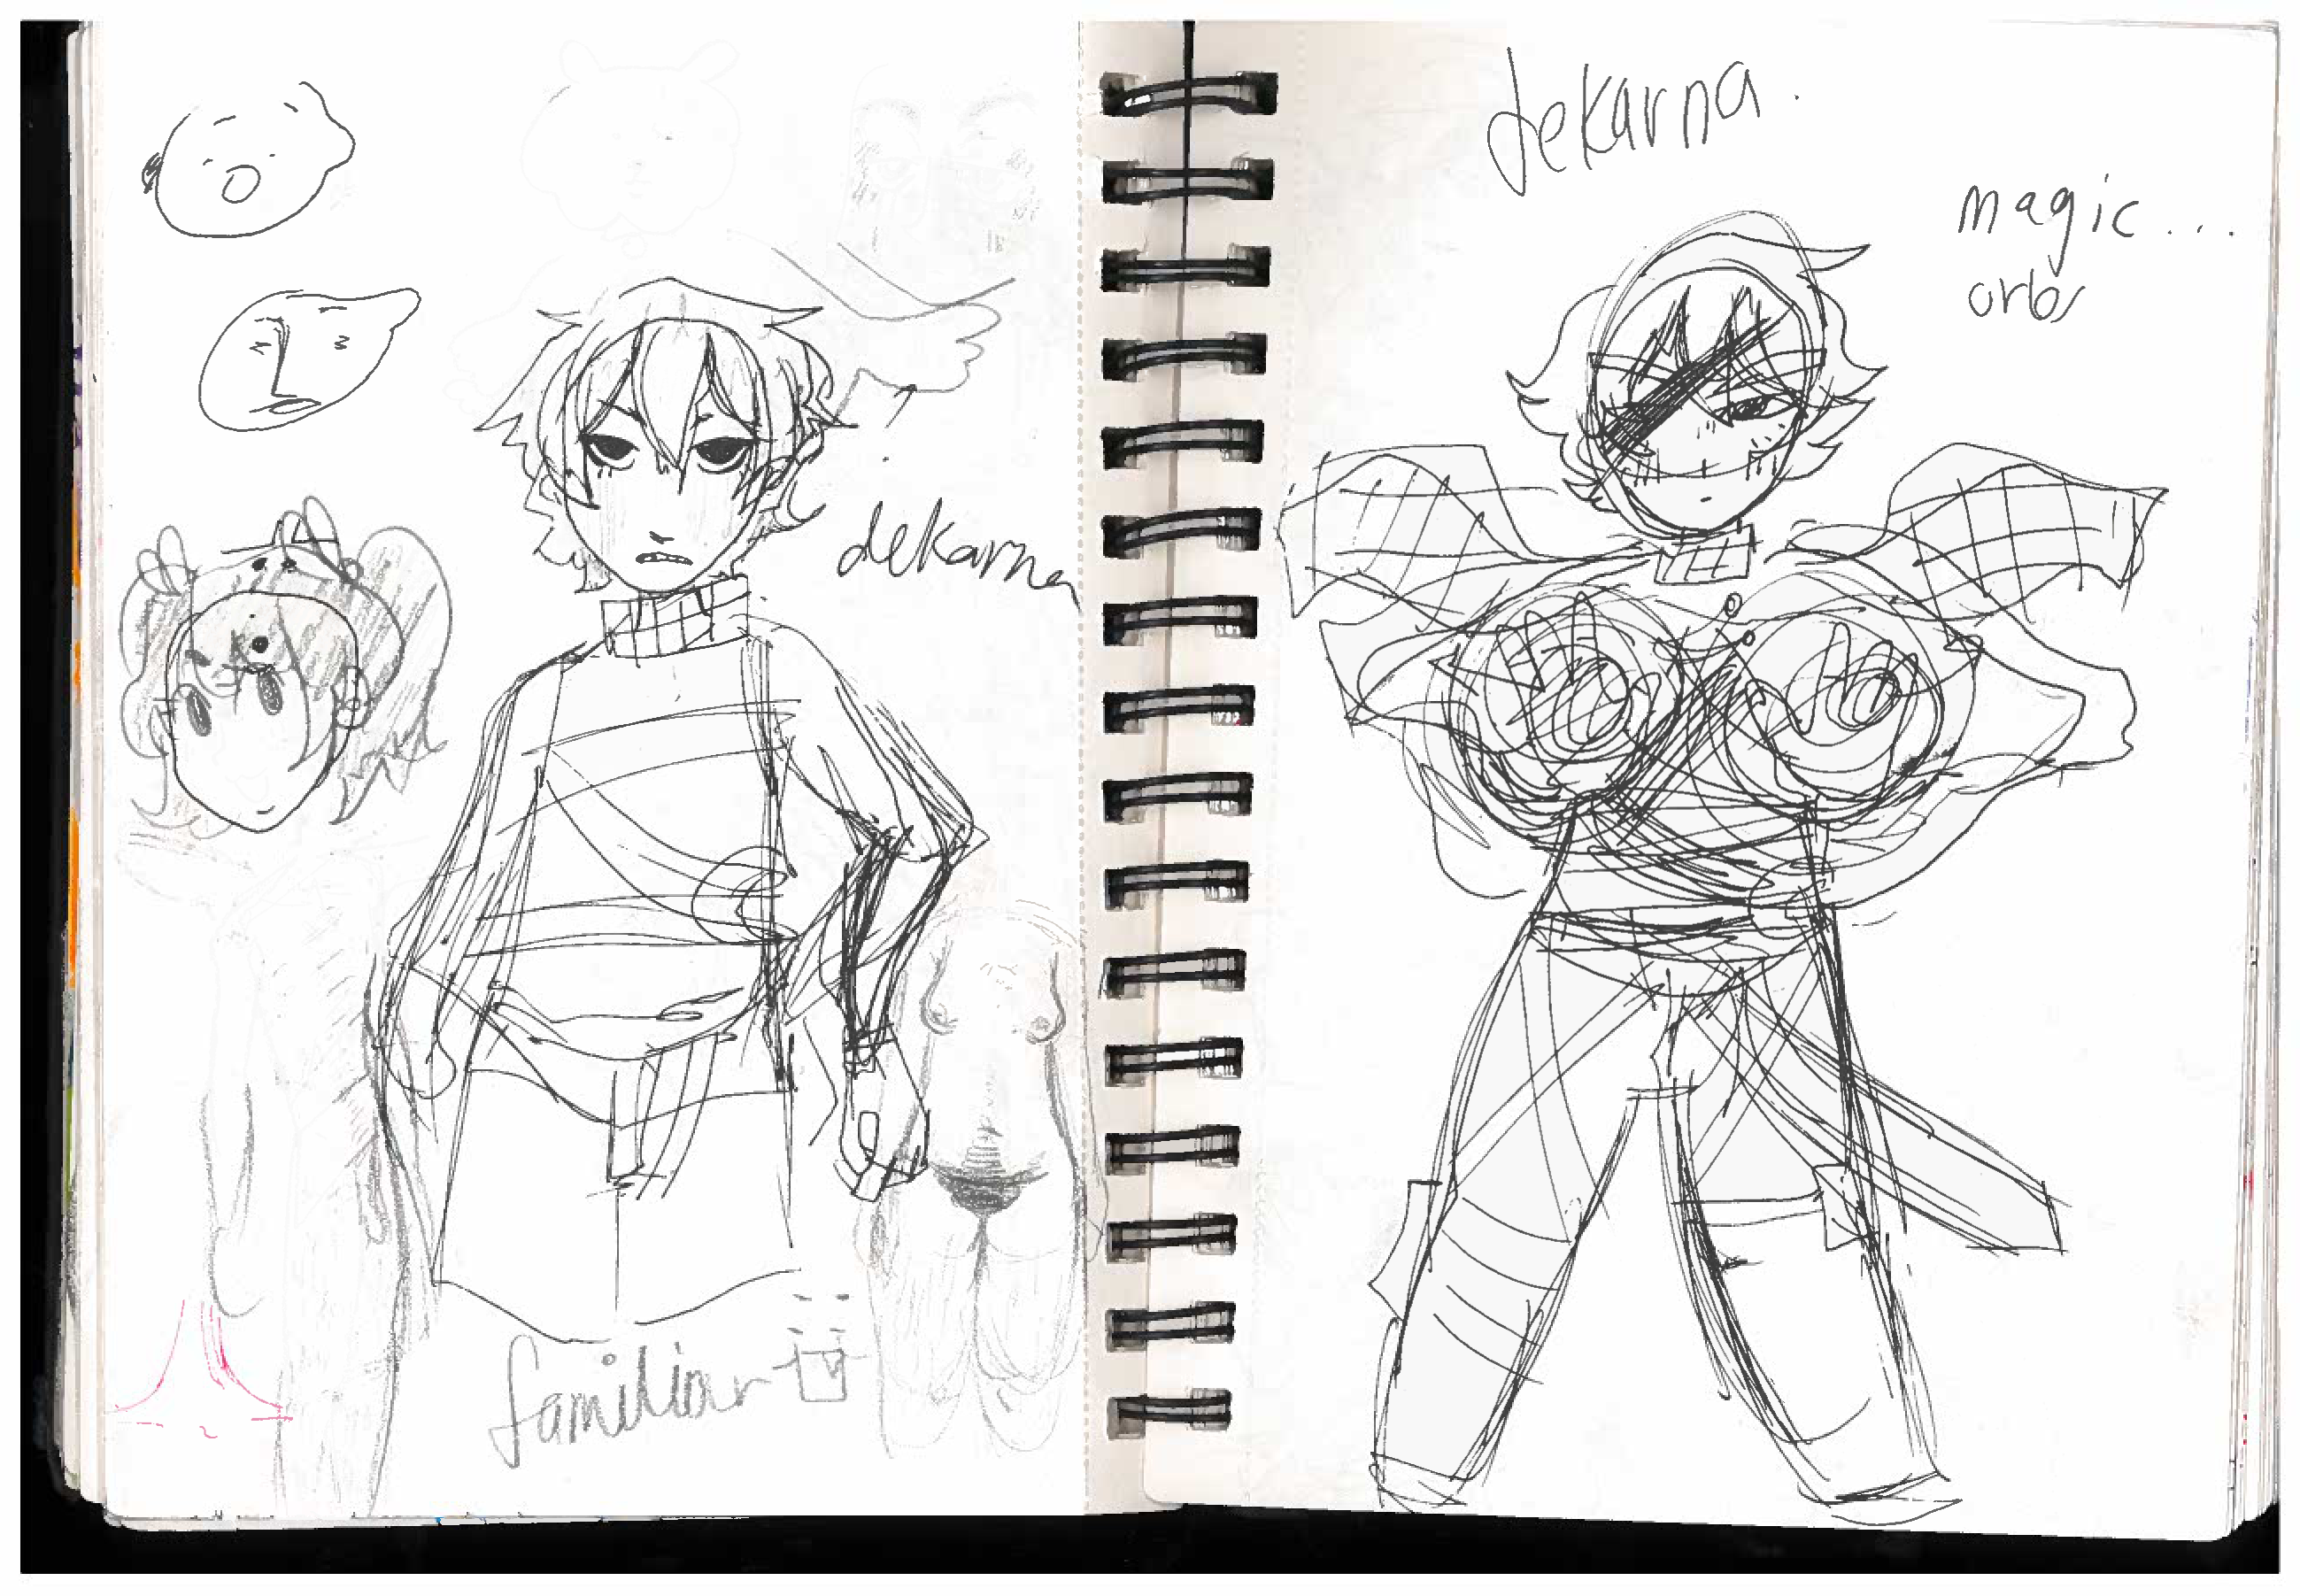 dekarna
familiar
dekarna.
magic...
orbs